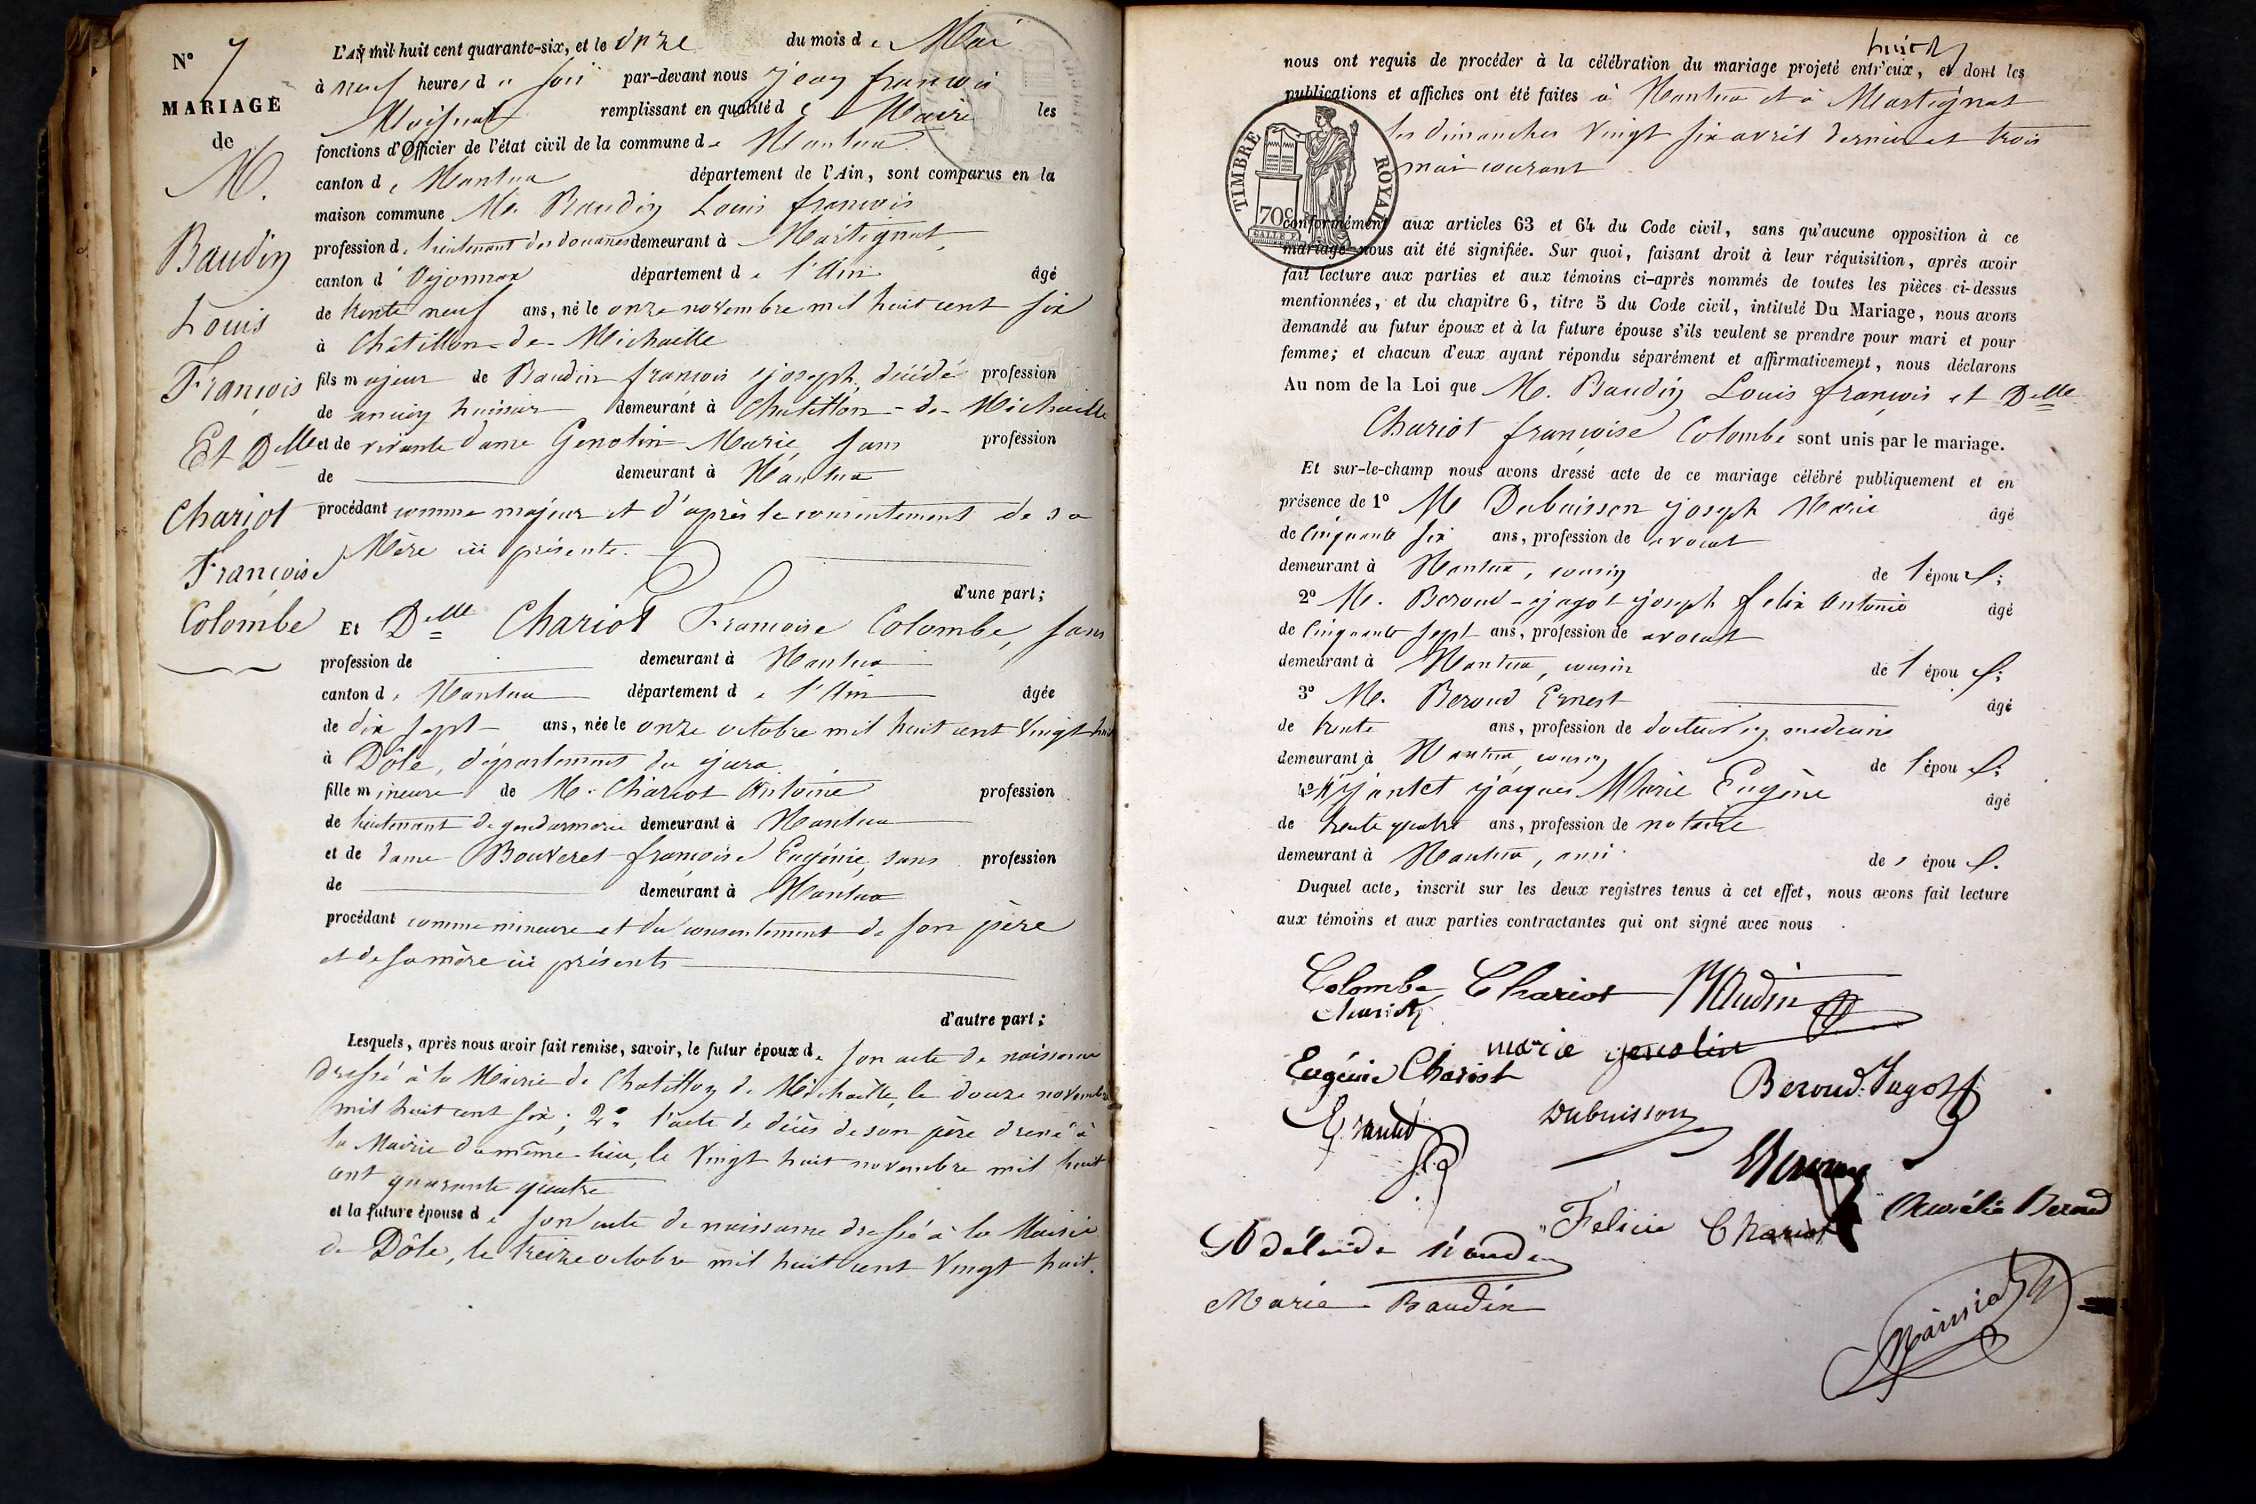 N° 7
MARIAGE
de
M.
Baudin
Louis
François
Et Delle
Chariot
Françoise
Colombe
L'An mil huit cent quarante-six, et le onze du mois de Mai
à neuf heures du soir par-devant nous jean françois
remplissant en qualité de Maire les
fonctions d'Officier de l'état civil de la commune de Nantua
canton de Nantua département de l'Ain, sont comparus en la
maison commune Mr. Baudin Louis françois
profession de lieutenant des douanes demeurant à Martignat
canton d' Oyonnax département de l'Ain âgé
de trente neuf ans, né le onze novembre mil huit cent six
à Châtillon-de-Michaille
fils majeur de Baudin françois joseph, décédé profession
de ancien huissier demeurant à Chatillon-de-Michaille
et de vivante dame Genolin Marie, sans profession
de demeurant à Nantua
procédant comme majeur et d'après le consentement de sa
Mère ici présente.
d'une part;
Et Delle Chariot Francoise Colombe, sans
profession de demeurant à Nantua
canton de Nantua département de l'Ain âgée
de dix sept ans, née le onze octobre mil huit cent vingt huit
à Dôle, département du jura
fille mineure de M. Chariot Antoine profession
de lieutenant de gendarmerie demeurant à Nantua
et de dame Bouveret françoise Eugénie, sans profession
de demeurant à Nantua
procédant comme mineure et du consentement de son père
et de sa mère ici présents
d'autre part;
Lesquels, après nous avoir fait remise, savoir, le futur époux de son acte de naissance
dressé à la Mairie de Chatillon de Michaille, le douze novembre
mil huit cent six; 2° l'acte de décès de son père dressé à
la Mairie du même lieu, le vingt huit novembre mil huit
cent quarante quatre
et la future épouse de son acte de naissance dressé à la Mairie
de Dôle, le treize octobre mil huit cent vingt huit.
nous ont requis de procéder à la célébration du mariage projeté entr'eux, et dont les
publications et affiches ont été faites à Nantua et à Martignat
les dimanches vingt six avril dernier et trois
mai courant
TIMBRE ROYAL
70c
conformément aux articles 63 et 64 du Code civil, sans qu'aucune opposition à ce
mariage nous ait été signifiée. Sur quoi, faisant droit à leur réquisition, après avoir
fait lecture aux parties et aux témoins ci-après nommés de toutes les pièces ci-dessus
mentionnées, et du chapitre 6, titre 5 du Code civil, intitulé Du Mariage, nous avons
demandé au futur époux et à la future épouse s'ils veulent se prendre pour mari et pour
femme; et chacun d'eux ayant répondu séparément et affirmativement, nous déclarons
Au nom de la Loi que M. Baudin Louis françois et Delle
Chariot françoise Colombe sont unis par le mariage.
Et sur-le-champ nous avons dressé acte de ce mariage célébré publiquement et en
présence de 1° M Dubuisson joseph Marie âgé
de cinquante six ans, profession de avocat
demeurant à Nantua, cousin de l'épouse;
2° M. Beroud-jagot joseph felix Antonio âgé
de cinquante sept ans, profession de avocat
demeurant à Nantua, cousin de l'épou
3° M. Beroud Ernest âgé
de trente ans, profession de docteur en medecine
demeurant à Nantua, cousin de l'épou
4° jantet jacques Marie Eugène âgé
de trente quatre ans, profession de notaire
demeurant à Nantua, ami de l'épou
Duquel acte, inscrit sur les deux registres tenus à cet effet, nous avons fait lecture
aux témoins et aux parties contractantes qui ont signé avec nous
Colombe Chariot Baudin
Chariot
marie genolin
Eugénie Chariot
Beroud-Jagot
E. Jantet
Dubuisson
Beroud
Félicie Chariot
Aurélie Beroud
Adélaïde
Marie Baudin